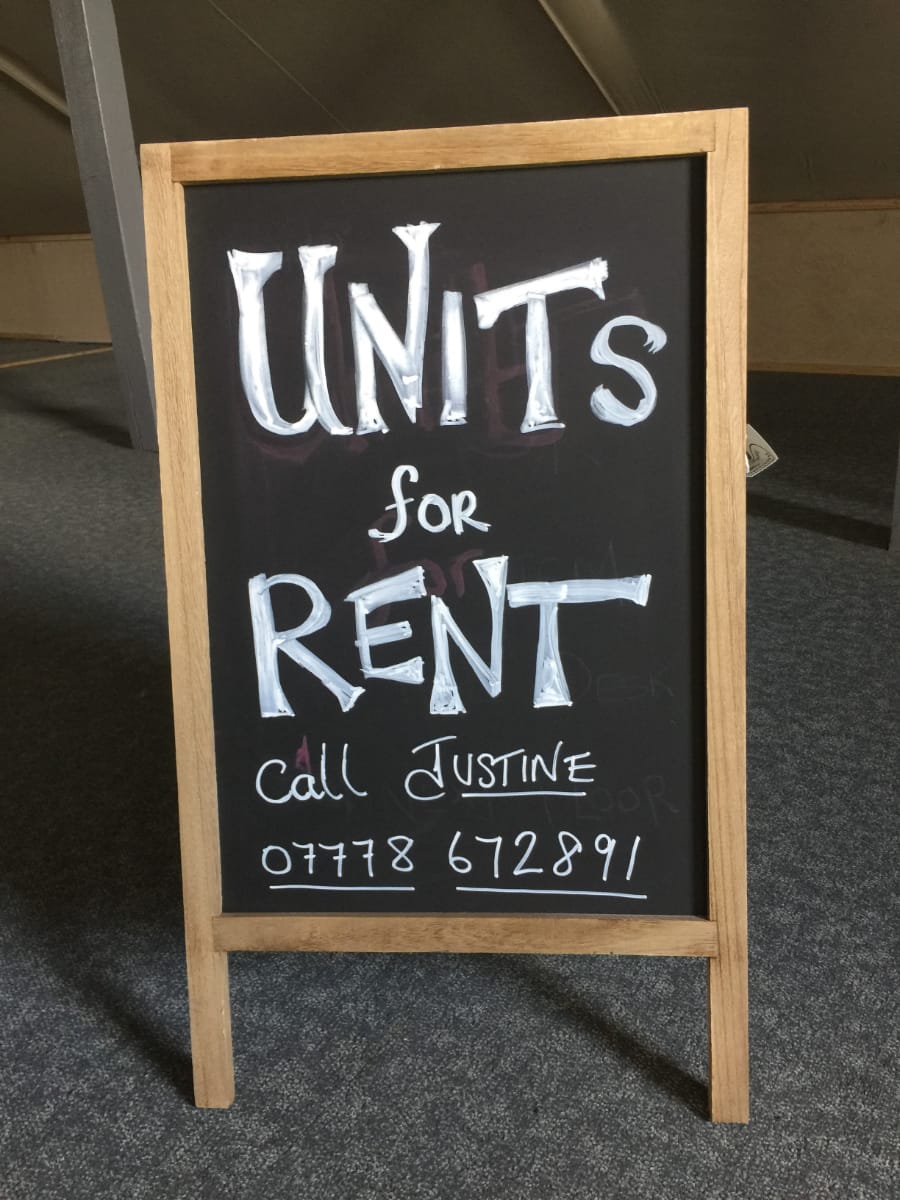 UNITS
for
RENT
call JUSTINE
07778 672891